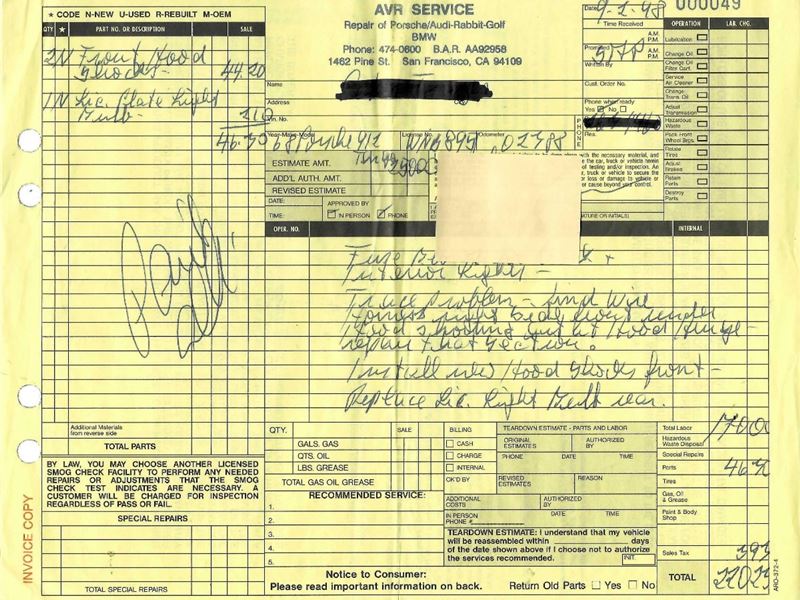 ★ CODE N-NEW U-USED R-REBUILT M-OEM
QTY ★ PART NO. OR DESCRIPTION SALE
2 N Front Hood
Shocks- 44.20
1 N Lic. Plate Light
Bulb- 2.10
46.30
AVR SERVICE
Repair of Porsche/Audi-Rabbit-Golf
BMW
Phone: 474-0600 B.A.R. AA92958
1462 Pine St. San Francisco, CA 94109
Name
Address
Vin. No.
Year-Make-Model License No. Odometer
68 Porsche 912
ESTIMATE AMT.
ADD'L AUTH. AMT.
REVISED ESTIMATE
DATE: APPROVED BY
TIME: IN PERSON PHONE
Date 9-2-98
000049
Time Received A.M. P.M.
Promised A.M. P.M.
Written By
Cust. Order No.
Phone when ready
Yes No
PHONE
Res.
with the necessary material, and
car, truck or vehicle herein
of testing and/or inspection. An
car, truck or vehicle to secure the
or loss or damage to vehicle or
or cause beyond your control.
OPERATION LAB. CHG.
Lubrication
Change Oil
Change Oil Filter Cart.
Service Air Cleaner
Change Trans. Oil
Adjust Transmission
Hazardous Waste
Pack Front Wheel Brgs.
Rotate Tires
Adjust Brakes
Retain Parts
Destroy Parts
OPER. NO. INTERNAL
Interior Lights -
Trace Problem - find Wire
Harness right side front under
Hood shorting out at Hood Hinge-
repair that section.
Install new Hood Shocks front-
Replace Lic. Light Bulb rear.
Paid
Additional Materials
from reverse side
TOTAL PARTS
BY LAW, YOU MAY CHOOSE ANOTHER LICENSED
SMOG CHECK FACILITY TO PERFORM ANY NEEDED
REPAIRS OR ADJUSTMENTS THAT THE SMOG
CHECK TEST INDICATES ARE NECESSARY. A
CUSTOMER WILL BE CHARGED FOR INSPECTION
REGARDLESS OF PASS OR FAIL.
SPECIAL REPAIRS
TOTAL SPECIAL REPAIRS
INVOICE COPY
QTY. SALE
GALS. GAS
QTS. OIL
LBS. GREASE
TOTAL GAS OIL GREASE
RECOMMENDED SERVICE:
1.
2.
3.
4.
5.
BILLING
CASH
CHARGE
INTERNAL
OK'D BY
TEARDOWN ESTIMATE - PARTS AND LABOR
ORIGINAL ESTIMATES AUTHORIZED BY
PHONE DATE TIME
REVISED ESTIMATES REASON
ADDITIONAL COSTS AUTHORIZED BY
IN PERSON PHONE # DATE TIME
TEARDOWN ESTIMATE: I understand that my vehicle
will be reassembled within days
of the date shown above if I choose not to authorize
the services recommended. INIT.
Notice to Consumer:
Please read important information on back.
Return Old Parts Yes No
Total Labor 170.00
Hazardous Waste Disposal
Special Repairs
Parts 46.30
Tires
Gas, Oil & Grease
Paint & Body Shop
Sales Tax 3.93
TOTAL 220.23
ARO-372-4